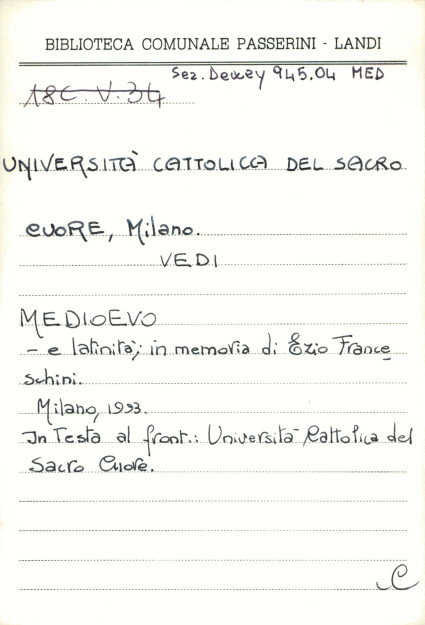 BIBLIOTECA COMUNALE PASSERINI - LANDI
Sez. Dewey 945.04 MED
18C. V. 34
UNIVERSITÀ CATTOLICA DEL SACRO
CUORE, Milano.
VEDI
MEDIOEVO
- e latinità; in memoria di Ezio France
schini.
Milano, 1993.
In Testa al front.: Università Cattolica del
Sacro Cuore.
C